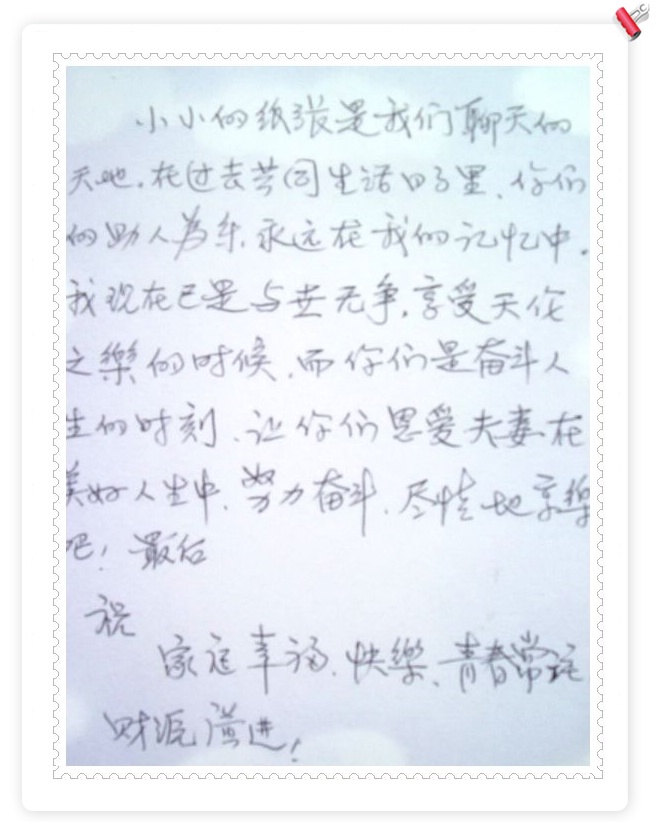 小小的纸张是我们聊天的
天地.在过去共同生活日子里、你们
的助人为乐.永远在我的记忆中.
我现在已是与世无争.享受天伦
之樂的时候.而你们是奋斗人
生的时刻.让你们恩爱夫妻在
美好人生中.努力奋斗.尽情地享樂
吧!最后
祝
家庭幸福.快樂、青春常驻
财源滚进!